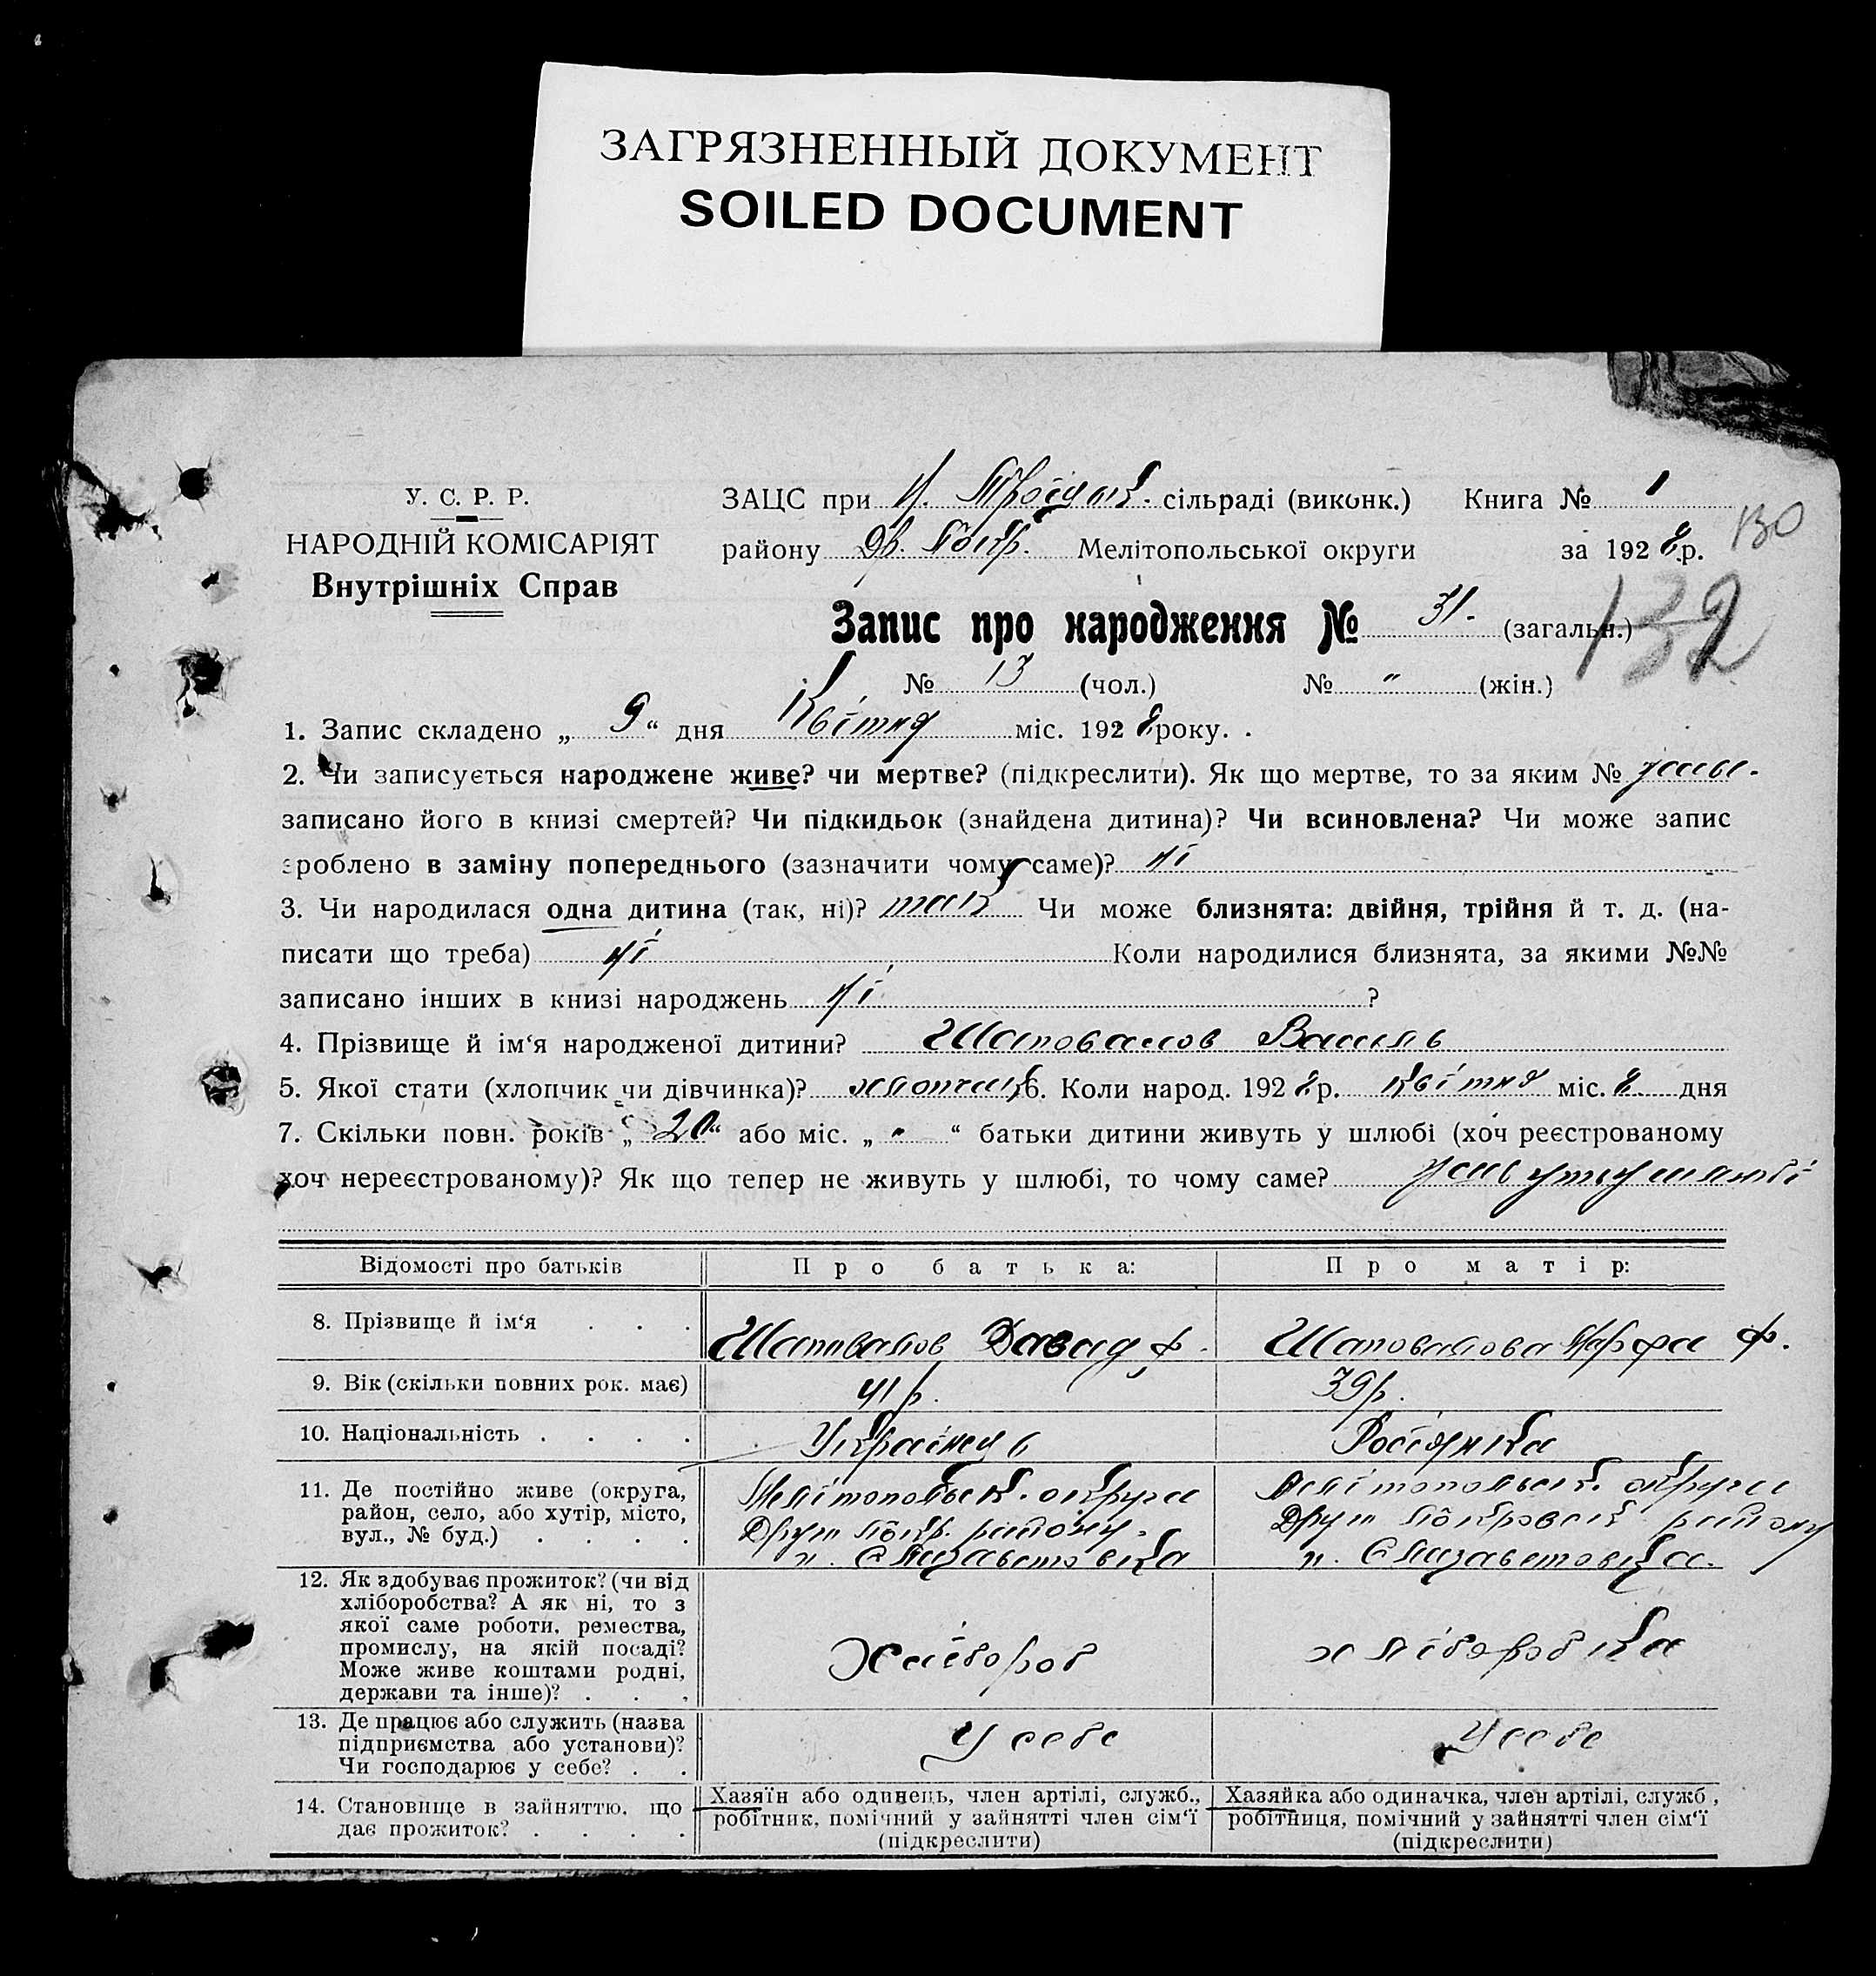 ЗАГРЯЗНЕННЫЙ ДОКУМЕНТ
SOILED DOCUMENT
У. С. Р. Р.
НАРОДНІЙ КОМІСАРІЯТ
Внутрішніх Справ
ЗАЦС при Н. Троіцьк. сільраді (виконк.) Книга № 1
району Др. Покр. Мелітопольської округи за 1928 р.
130
132
Запис про народження № 31. (загальн.)
№ 13 (чол.) № " (жін.)
1. Запис складено „ 9 “ дня Квітня міс. 1928 року.
2. Чи записується народжене живе? чи мертве? (підкреслити). Як що мертве, то за яким №
записано його в книзі смертей? Чи підкидьок (знайдена дитина)? Чи всиновлена? Чи може запис
зроблено в заміну попереднього (зазначити чому саме)? ні
3. Чи народилася одна дитина (так, ні)? так Чи може близнята: двійня, трійня й т. д. (на-
писати що треба) ні Коли народилися близнята, за якими №№
записано інших в книзі народжень ні ?
4. Прізвище й ім‘я народженої дитини? Шаповалов Василь
5. Якої стати (хлопчик чи дівчинка)? хлопчик 6. Коли народ. 1928 р. Квітня міс. 8 дня
7. Скільки повн. років „ 20 “ або міс. „ “ батьки дитини живуть у шлюбі (хоч реєстрованому
хоч нереєстрованому)? Як що тепер не живуть у шлюбі, то чому саме? живуть у шлюбі
Відомості про батьків
Про батька:
Про матір:
8. Прізвище й ім‘я . . .
Шаповалов Давид Ф.
Шаповалова Марфа Ф.
9. Вік (скільки повних рок. має)
41 р.
39 р.
10. Національність . . . .
Українець
Росіянка
11. Де постійно живе (округа,
район, село, або хутір, місто,
вул., № буд.) . . . .
Мелітопольск. округи
Друг Покр. району
п. Єлизаветовка
Мелітопольск. округи
Друг Покровск району
п. Єлизаветовка.
12. Як здобуває прожиток? (чи від
хліборобства? А як ні, то з
якої саме роботи, ремества,
промислу, на якій посаді?
Може живе коштами родні,
держави та інше)? . . .
Хлібороб
хліборобка
13. Де працює або служить (назва
підприємства або установи)?
Чи господарює у себе? . .
У себе
У себе
14. Становище в зайняттю, що
дає прожиток? . . . .
Хазяїн або одинець, член артілі, служб.,
робітник, помічний у зайнятті член сім‘ї
(підкреслити)
Хазяйка або одиначка, член артілі, служб ,
робітниця, помічний у зайнятті член сім‘ї
(підкреслити)